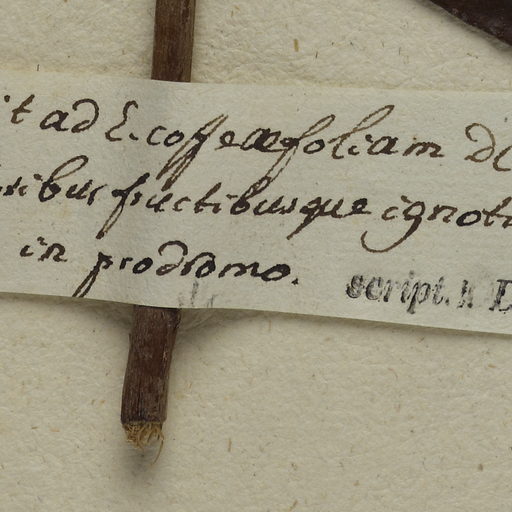 it ad E. coffeæfoliam DC
oribus fructibusque ignoti
in prodromo.
script.